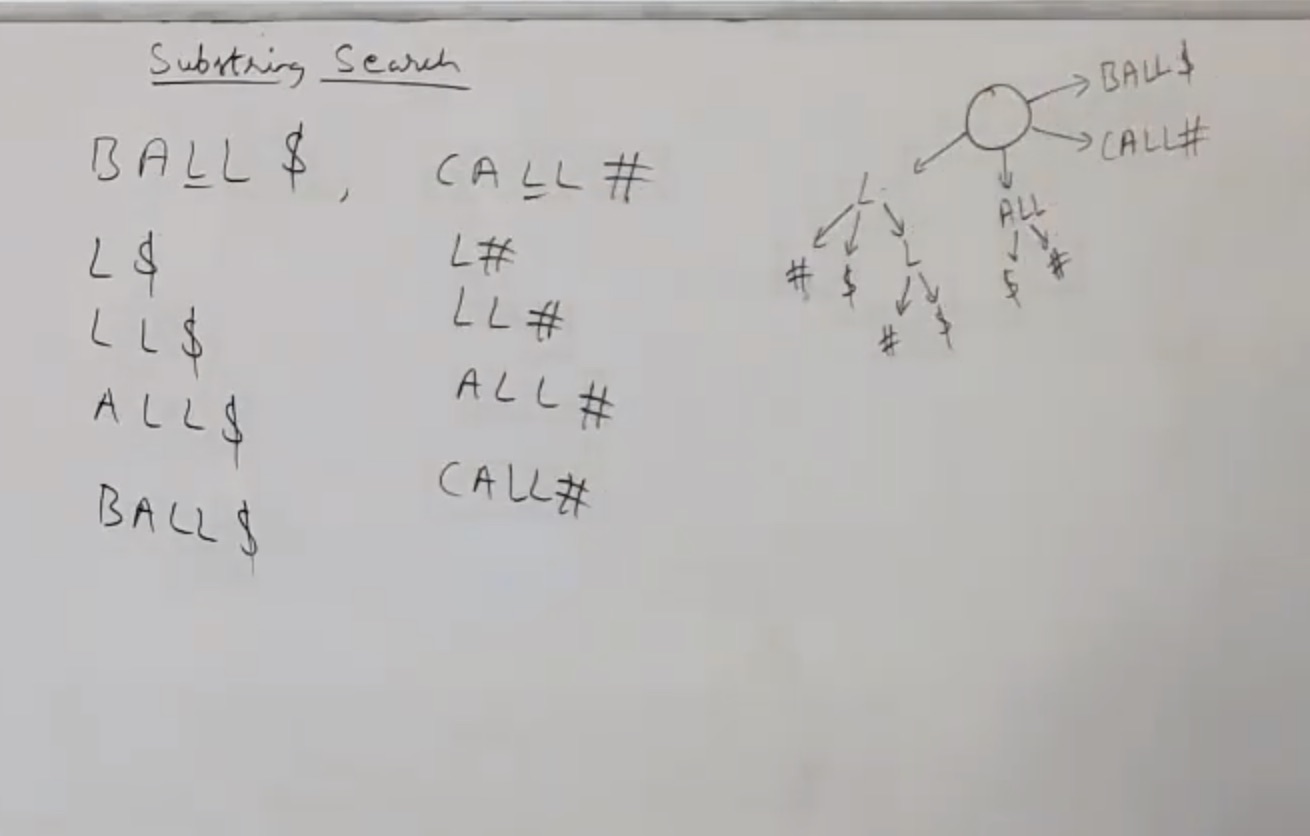 Substring Search
BALL$, CALL#
L$
LL$
ALL$
BALL$
L#
LL#
ALL#
CALL#
BALL$
CALL#
L
ALL
# $ L
$ #
# $